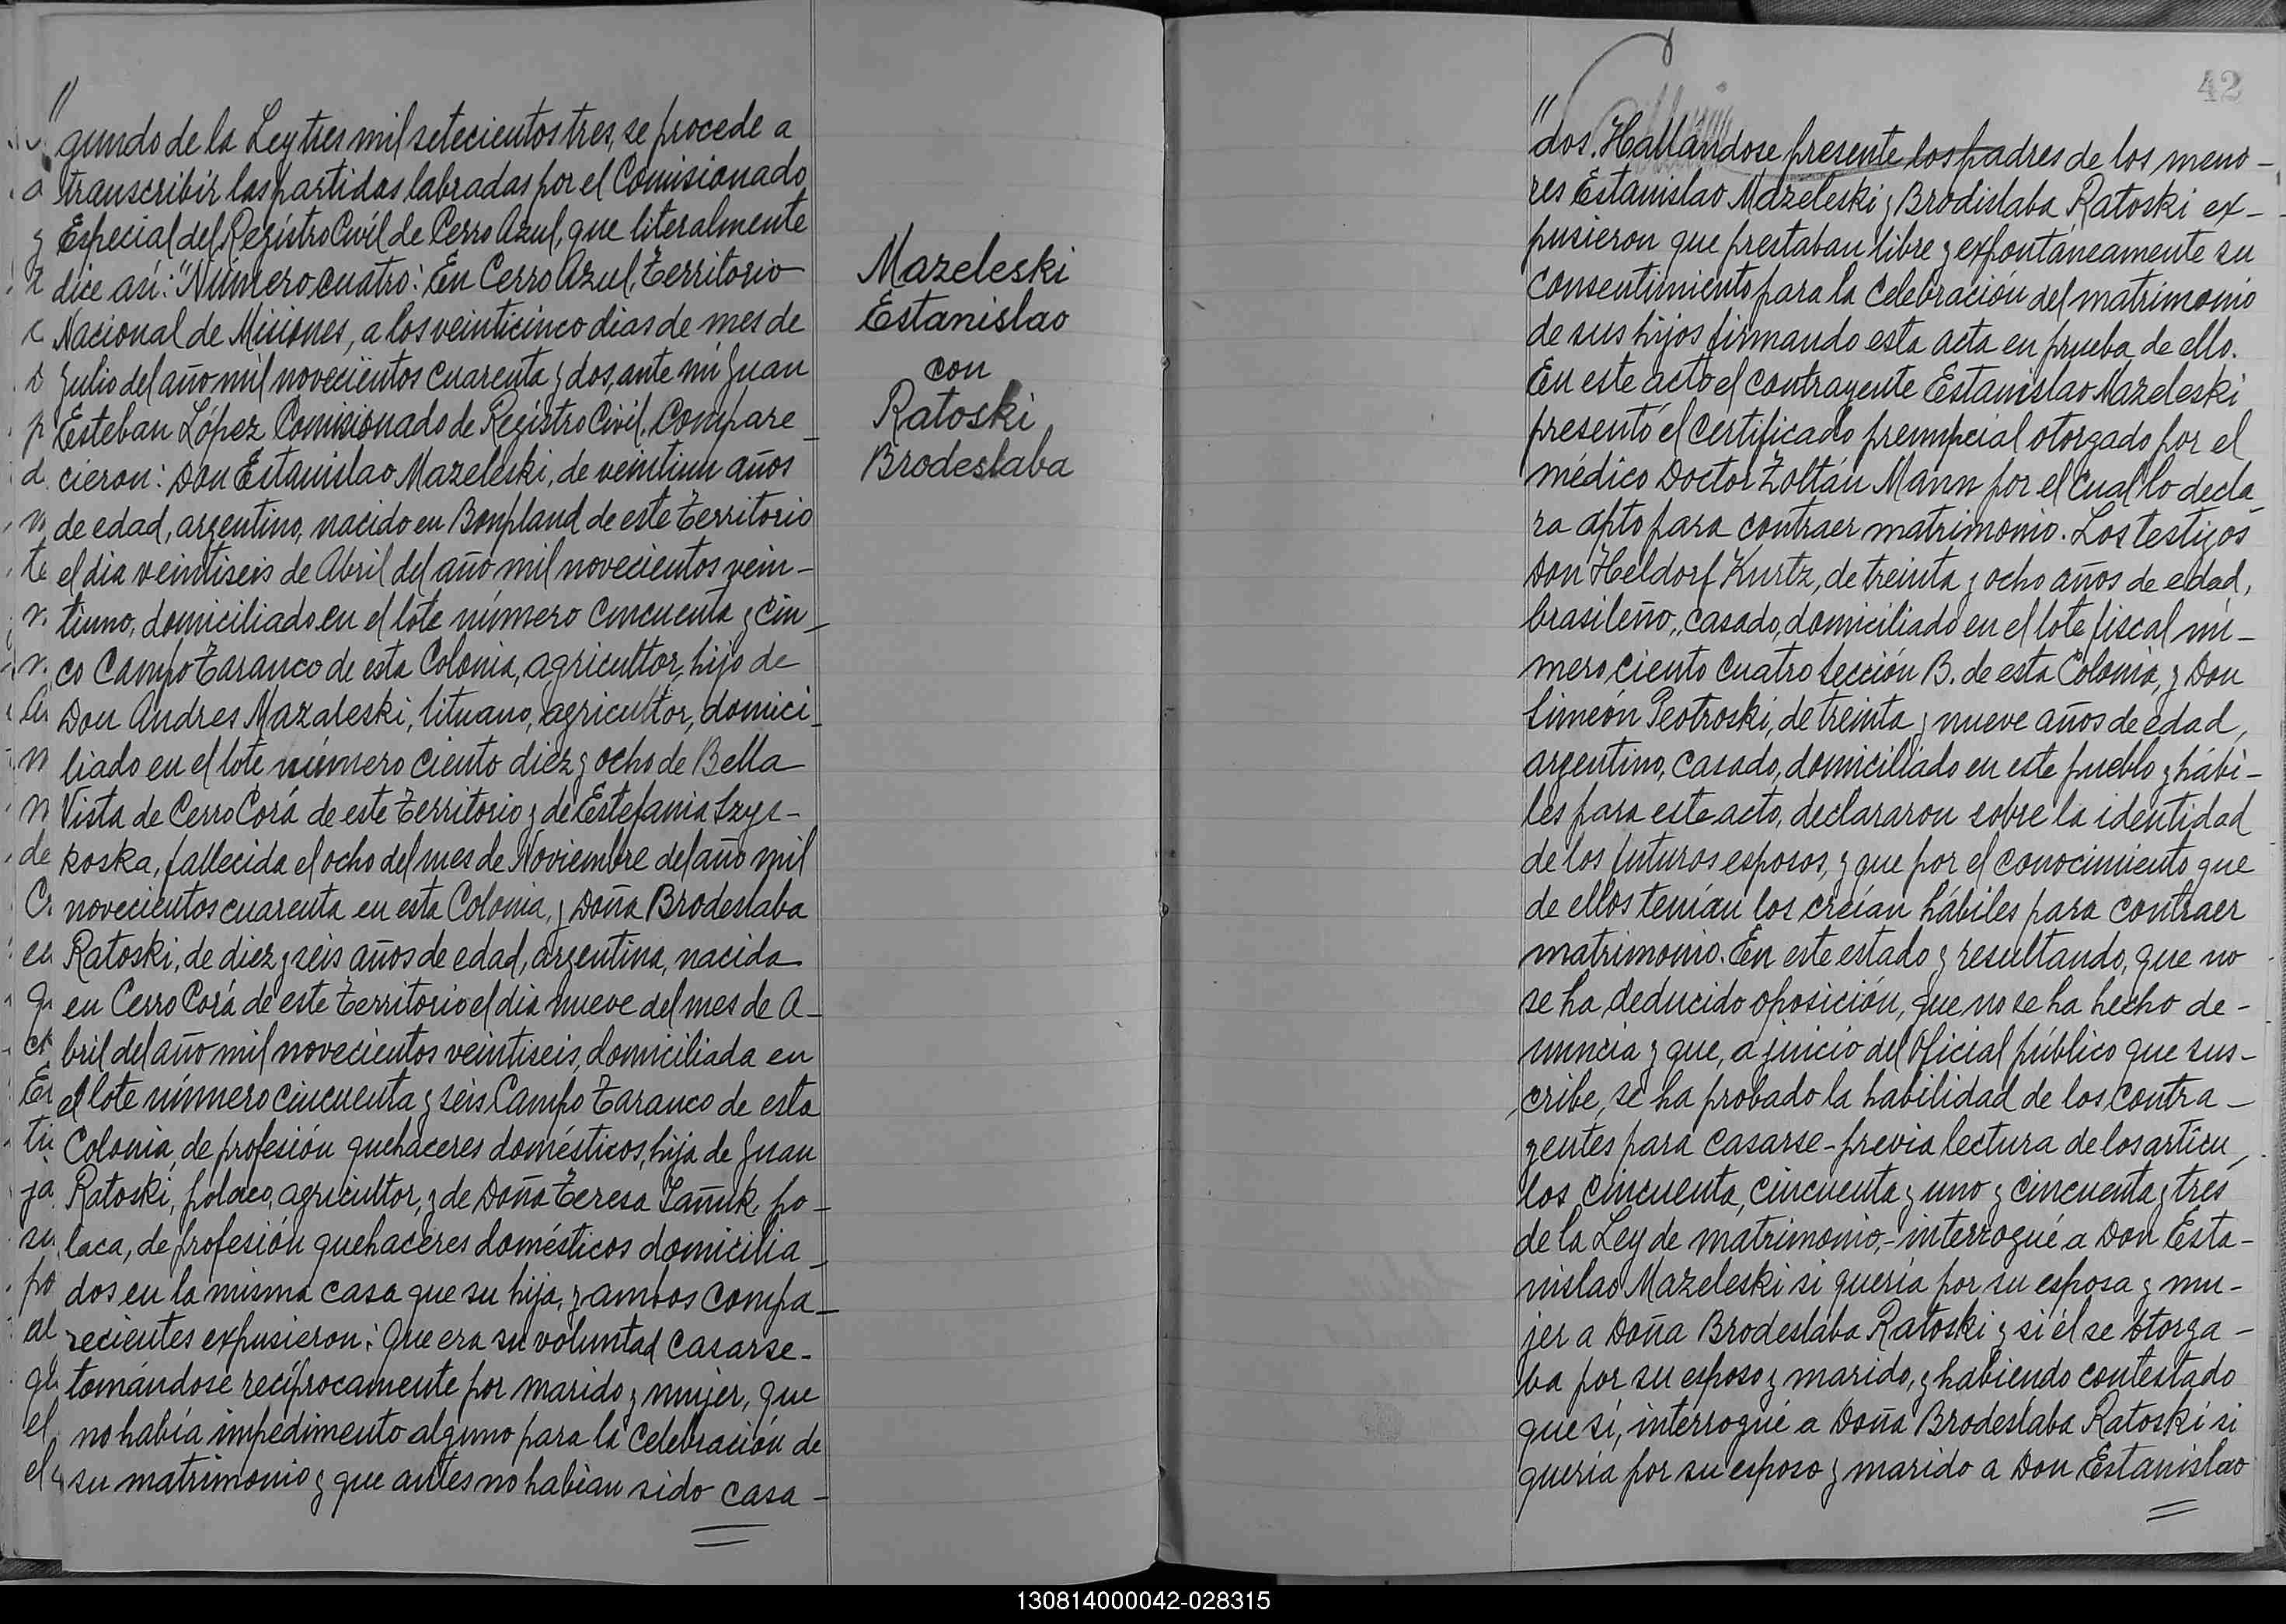 "gundo de la Ley tres mil setecientos tres, se procede a
transcribir las partidas labradas por el Comisionado
Especial del Registro Civil de Cerro Azul, que literalmente
dice así: "Número cuatro: En Cerro Azul, Territorio
Nacional de Misiones, a los veinticinco dias de mes de
Julio del año mil novecientos cuarenta y dos, ante mí Juan
Esteban López Comisionado de Registro Civil. Compare_
cieron: Don Estanislao Mazeleski, de veintiun años
de edad, argentino, nacido en Bonpland de este Territorio
el dia veintiseis de Abril del año mil novecientos vein-
tiuno, domiciliado en el lote número cincuenta y cin_
co Campo Taranco de esta Colonia, agricultor, hijo de
Don Andres Mazaleski, lituano, agricultor, domici_
liado en el lote número ciento diez y ocho de Bella
Vista de Cerro Corá de este Territorio y de Estefania Szys-
koska, fallecida el ocho del mes de Noviembre del año mil
novecientos cuarenta en esta Colonia, y Doña Brodeslaba
Ratoski, de diez y seis años de edad, argentina, nacida
en Cerro Corá de este Territorio el dia nueve del mes de A_
bril del año mil novecientos veintiseis, domiciliada en
el lote número cincuenta y seis Campo Taranco de esta
Colonia, de profesión quehaceres domésticos, hija de Juan
Ratoski, polaco, agricultor, y de Doña Teresa Iañuk, po_
laca, de profesión quehaceres domésticos domicilia_
dos en la misma casa que su hija, y ambos compa_
recientes expusieron: Que era su voluntad casarse-
tomándose recíprocamente por marido y mujer, que
no había impedimento alguno para la celebración de
su matrimonio y que antes no habian sido casa-
Mazeleski
Estanislao
con
Ratoski
Brodeslaba
42
"dos. Hallandose presente los padres de los meno-
res Estanislao Mazeleski y Brodislaba Ratoski ex-
pusieron que prestaban libre y expontáneamente su
consentimiento para la celebración del matrimonio
de sus hijos firmando esta acta en prueba de ello.
En este acto el contrayente Estanislao Mazeleski
presentó el certificado prenupcial otorgado por el
médico Doctor Zoltán Mann por el cual lo decla_
ra apto para contraer matrimonio. Los testigos
Don Heldorf Kurtz, de treinta y ocho años de edad,
brasileño, casado, domiciliado en el lote fiscal nú-
mero ciento cuatro sección B. de esta Colonia, y Don
Simeón Peotroski, de treinta y nueve años de edad,
argentino, casado, domiciliado en este pueblo y hábi-
les para este acto, declararon sobre la identidad
de los futuros esposos, y que por el conocimiento que
de ellos tenían los creían hábiles para contraer
matrimonio. En este estado y resultando, que no
se ha deducido oposición, que no se ha hecho de-
nuncia y que, a juicio del Oficial público que sus-
cribe, se ha probado la habilidad de los contra-
yentes para casarse-previa lectura de los articu_
los cincuenta, cincuenta y uno y cincuenta y tres
de la Ley de matrimonio,-interrogué a Don Esta-
nislao Mazeleski si quería por su esposa y mu-
jer a Doña Brodeslaba Ratoski y si él se otorga-
ba por su esposo y marido, y habiendo contestado
que sí, interrogué a Doña Brodeslaba Ratoski si
quería por su esposo y marido a Don Estanislao
130814000042-028315